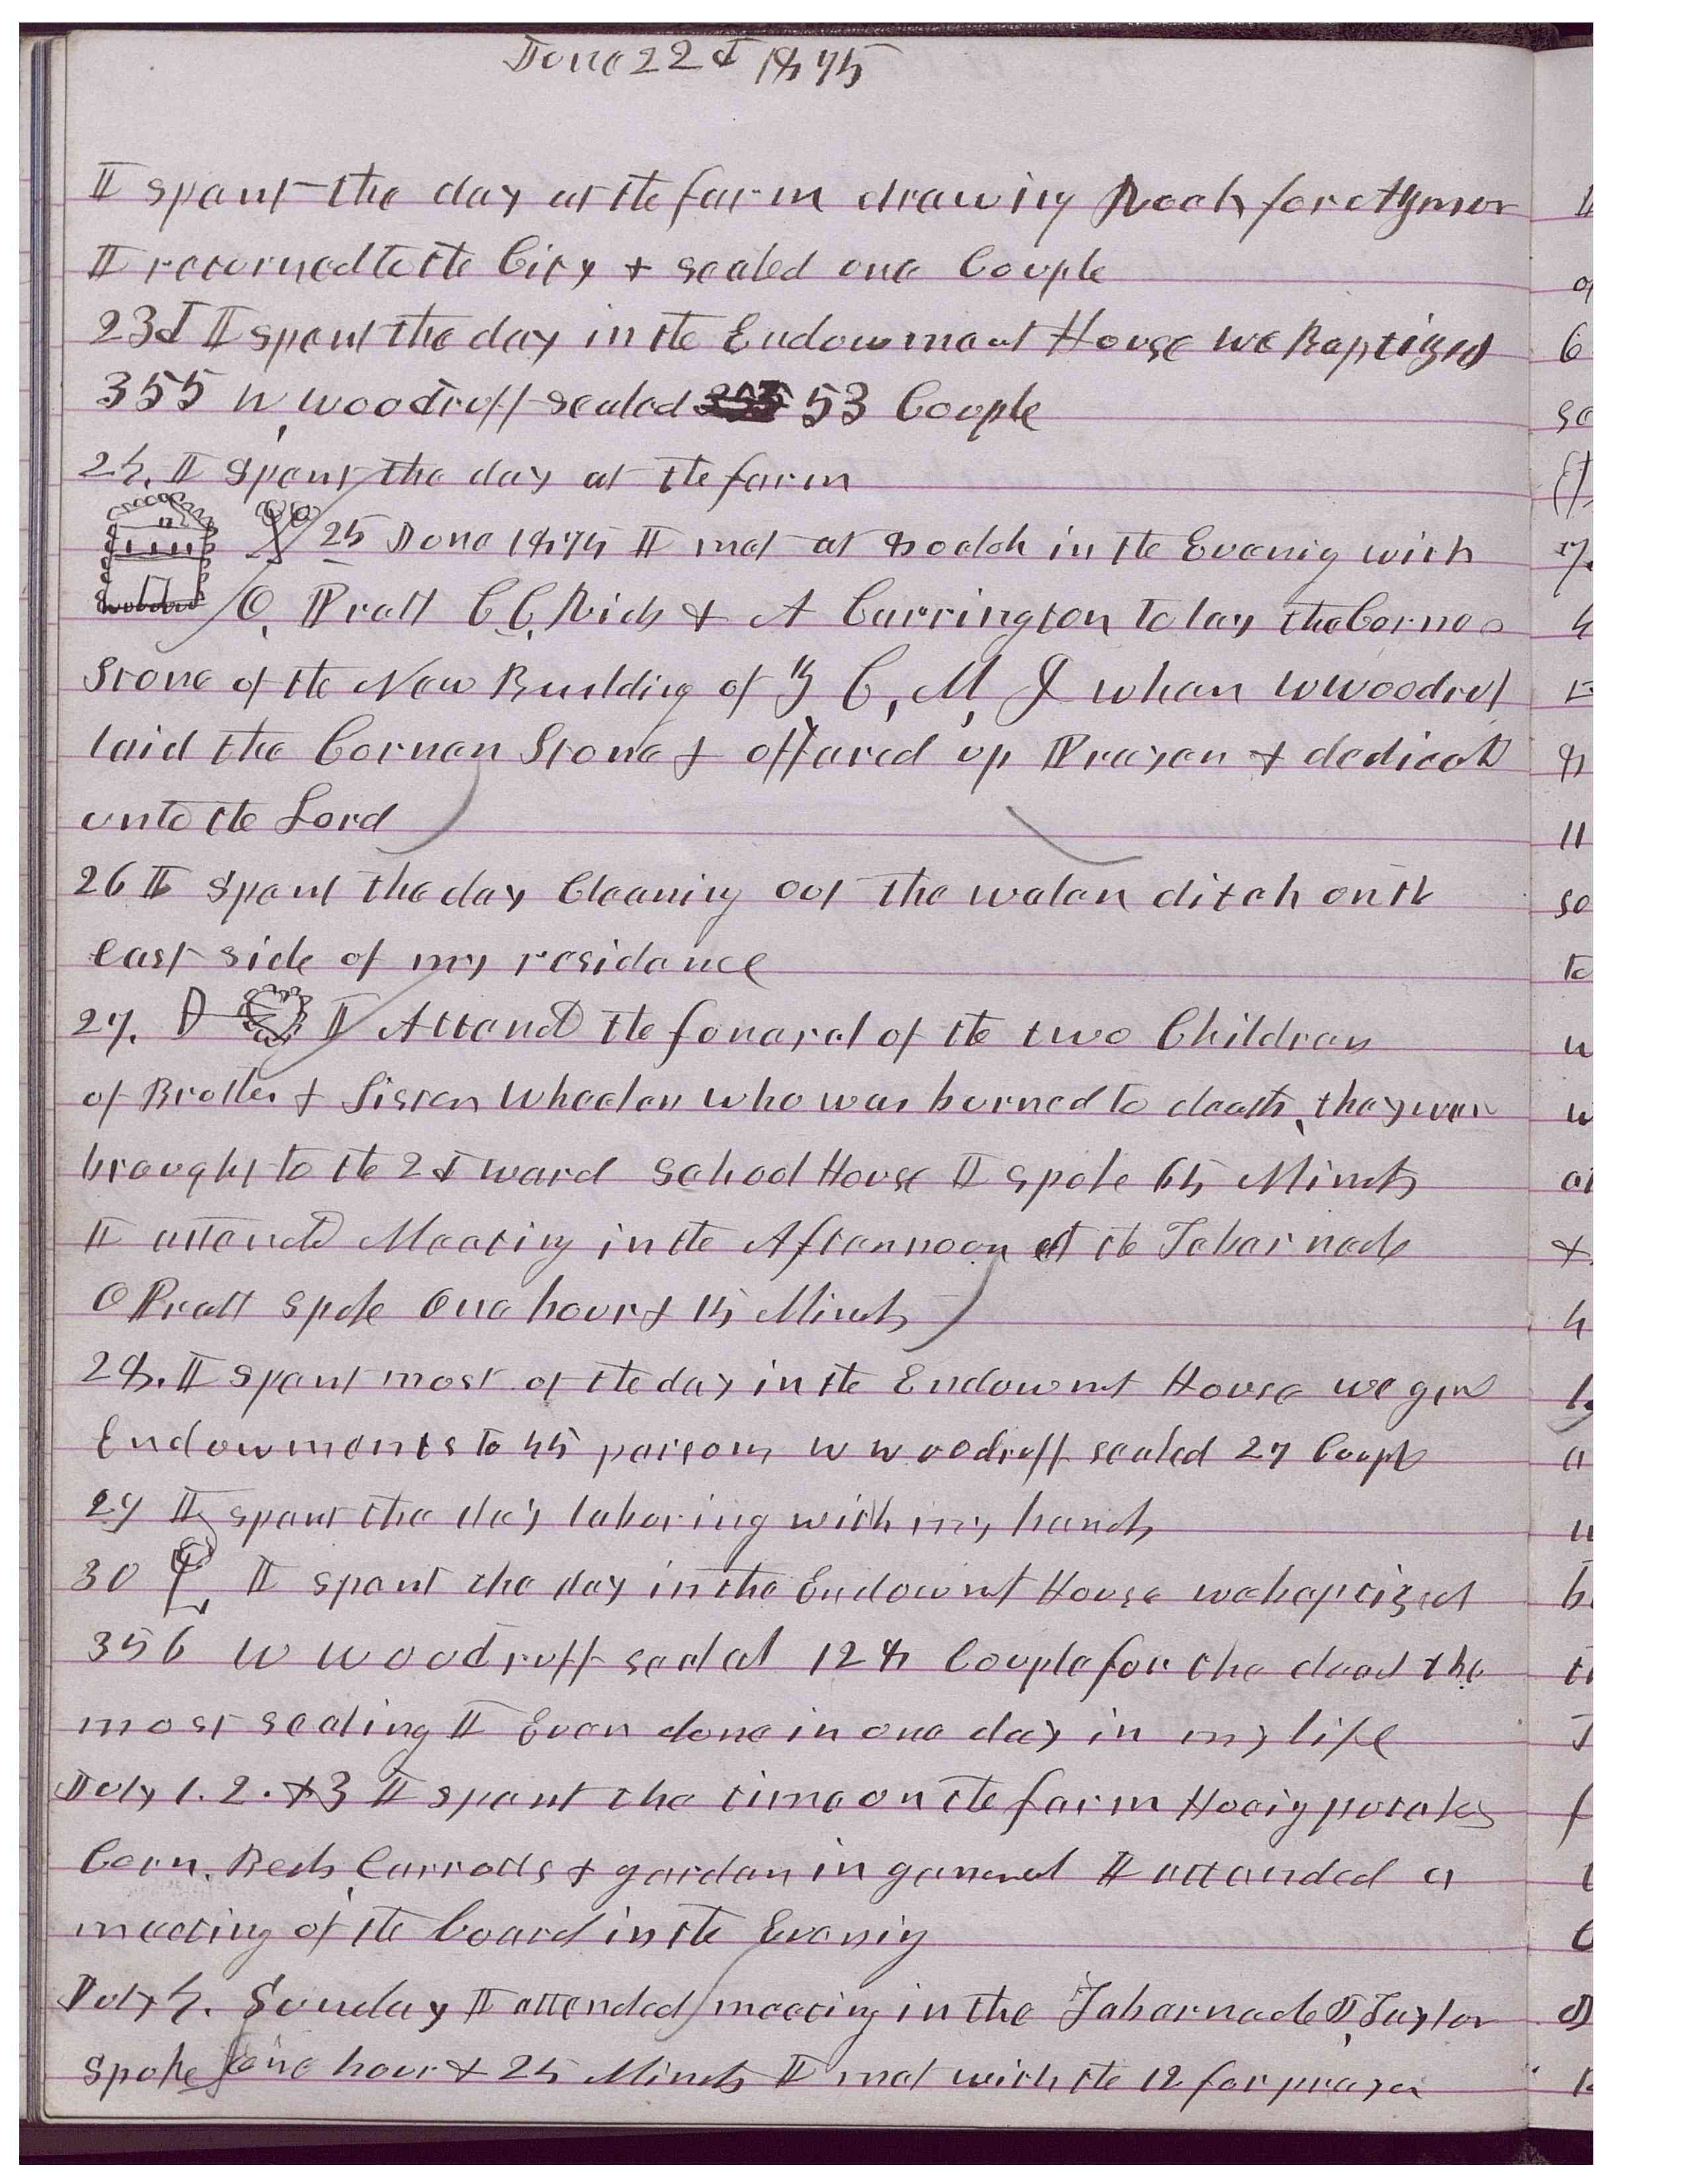 June 22d 1875
I spent the day at the farm drawing Rock for Azmon
I returned to the City & sealed one Couple
23d I spent the day in the Endowment House we Baptized
355 W, Woodruff sealed 53 Couple
24. I spent the day at the farm
25 June 1875 I met at 8 oclok in the Evenig with
O, Pratt C C, Rich & A Carrington to lay the Corner
Stone of the New Building of Z C, M, I when W Woodruf
laid the Corner Stone & offered up Prayer & dedicatd
unto the Lord
26 I spent the day Cleaning out the water ditch on the
east side of my residence
27. I Attend the funeral of the two Children
of Brother & Sister Wheeler who was burned to death, they wer
brought to the 2d ward School House I spoke 65 Minuts
I attend Meeting in the Afternoon at the Tabernacle
O Pratt spoke One hour & 15 Minuts
28. I spent most of the day in the Endowmt House we gave
Endowments to 45 persons W Woodruff sealed 27 Coupl
29 I spent the day laboring with my hands
30 I spent the day in the Endowmt House we baptized
356 W Woodruff sealed 128 Couple for the dead the
most sealing I Ever done in one day in my life
July 1. 2. & 3 I spent the time on the farm Hoeig potatoes
Corn. Beets, Carrotts & garden in general I attended a
meeting of the board in the Evenig
July 4. Sunday I attended meeting in the Tabernacle J, Taylor
spoke one hour & 25 Minuts I met with the 12 for prayer